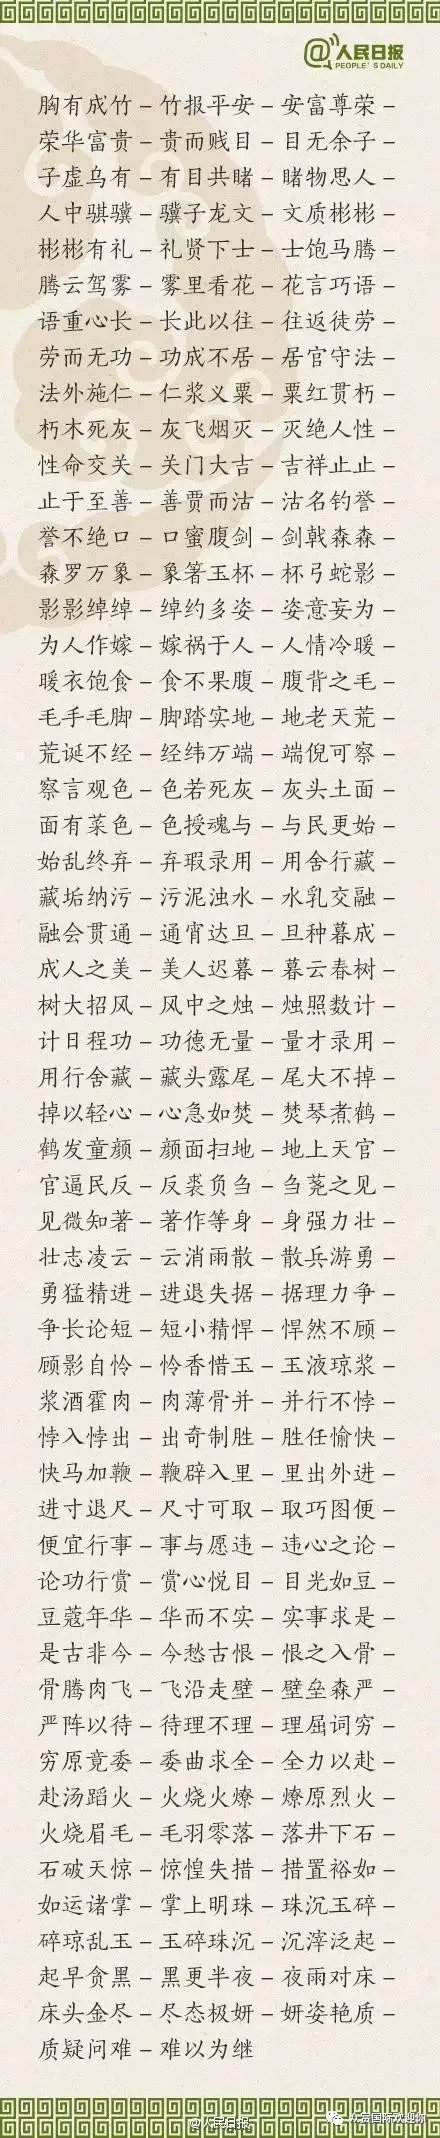 @人民日报
PEOPLE'S DAILY
胸有成竹–竹报平安–安富尊荣–
荣华富贵–贵而贱目–目无余子–
子虚乌有–有目共睹–睹物思人–
人中骐骥–骥子龙文–文质彬彬–
彬彬有礼–礼贤下士–士饱马腾–
腾云驾雾–雾里看花–花言巧语–
语重心长–长此以往–往返徒劳–
劳而无功–功成不居–居官守法–
法外施仁–仁浆义粟–粟红贯朽–
朽木死灰–灰飞烟灭–灭绝人性–
性命交关–关门大吉–吉祥止止–
止于至善–善贾而沽–沽名钓誉–
誉不绝口–口蜜腹剑–剑戟森森–
森罗万象–象箸玉杯–杯弓蛇影–
影影绰绰–绰约多姿–姿意妄为–
为人作嫁–嫁祸于人–人情冷暖–
暖衣饱食–食不果腹–腹背之毛–
毛手毛脚–脚踏实地–地老天荒–
荒诞不经–经纬万端–端倪可察–
察言观色–色若死灰–灰头土面–
面有菜色–色授魂与–与民更始–
始乱终弃–弃瑕录用–用舍行藏–
藏垢纳污–污泥浊水–水乳交融–
融会贯通–通宵达旦–旦种暮成–
成人之美–美人迟暮–暮云春树–
树大招风–风中之烛–烛照数计–
计日程功–功德无量–量才录用–
用行舍藏–藏头露尾–尾大不掉–
掉以轻心–心急如焚–焚琴煮鹤–
鹤发童颜–颜面扫地–地上天官–
官逼民反–反裘负刍–刍荛之见–
见微知著–著作等身–身强力壮–
壮志凌云–云消雨散–散兵游勇–
勇猛精进–进退失据–据理力争–
争长论短–短小精悍–悍然不顾–
顾影自怜–怜香惜玉–玉液琼浆–
浆酒霍肉–肉薄骨并–并行不悖–
悖入悖出–出奇制胜–胜任愉快–
快马加鞭–鞭辟入里–里出外进–
进寸退尺–尺寸可取–取巧图便–
便宜行事–事与愿违–违心之论–
论功行赏–赏心悦目–目光如豆–
豆蔻年华–华而不实–实事求是–
是古非今–今愁古恨–恨之入骨–
骨腾肉飞–飞沿走壁–壁垒森严–
严阵以待–待理不理–理屈词穷–
穷原竟委–委曲求全–全力以赴–
赴汤蹈火–火烧火燎–燎原烈火–
火烧眉毛–毛羽零落–落井下石–
石破天惊–惊惶失措–措置裕如–
如运诸掌–掌上明珠–珠沉玉碎–
碎琼乱玉–玉碎珠沉–沉滓泛起–
起早贪黑–黑更半夜–夜雨对床–
床头金尽–尽态极妍–妍姿艳质–
质疑问难–难以为继
@人民日报
众赏国际欢迎你